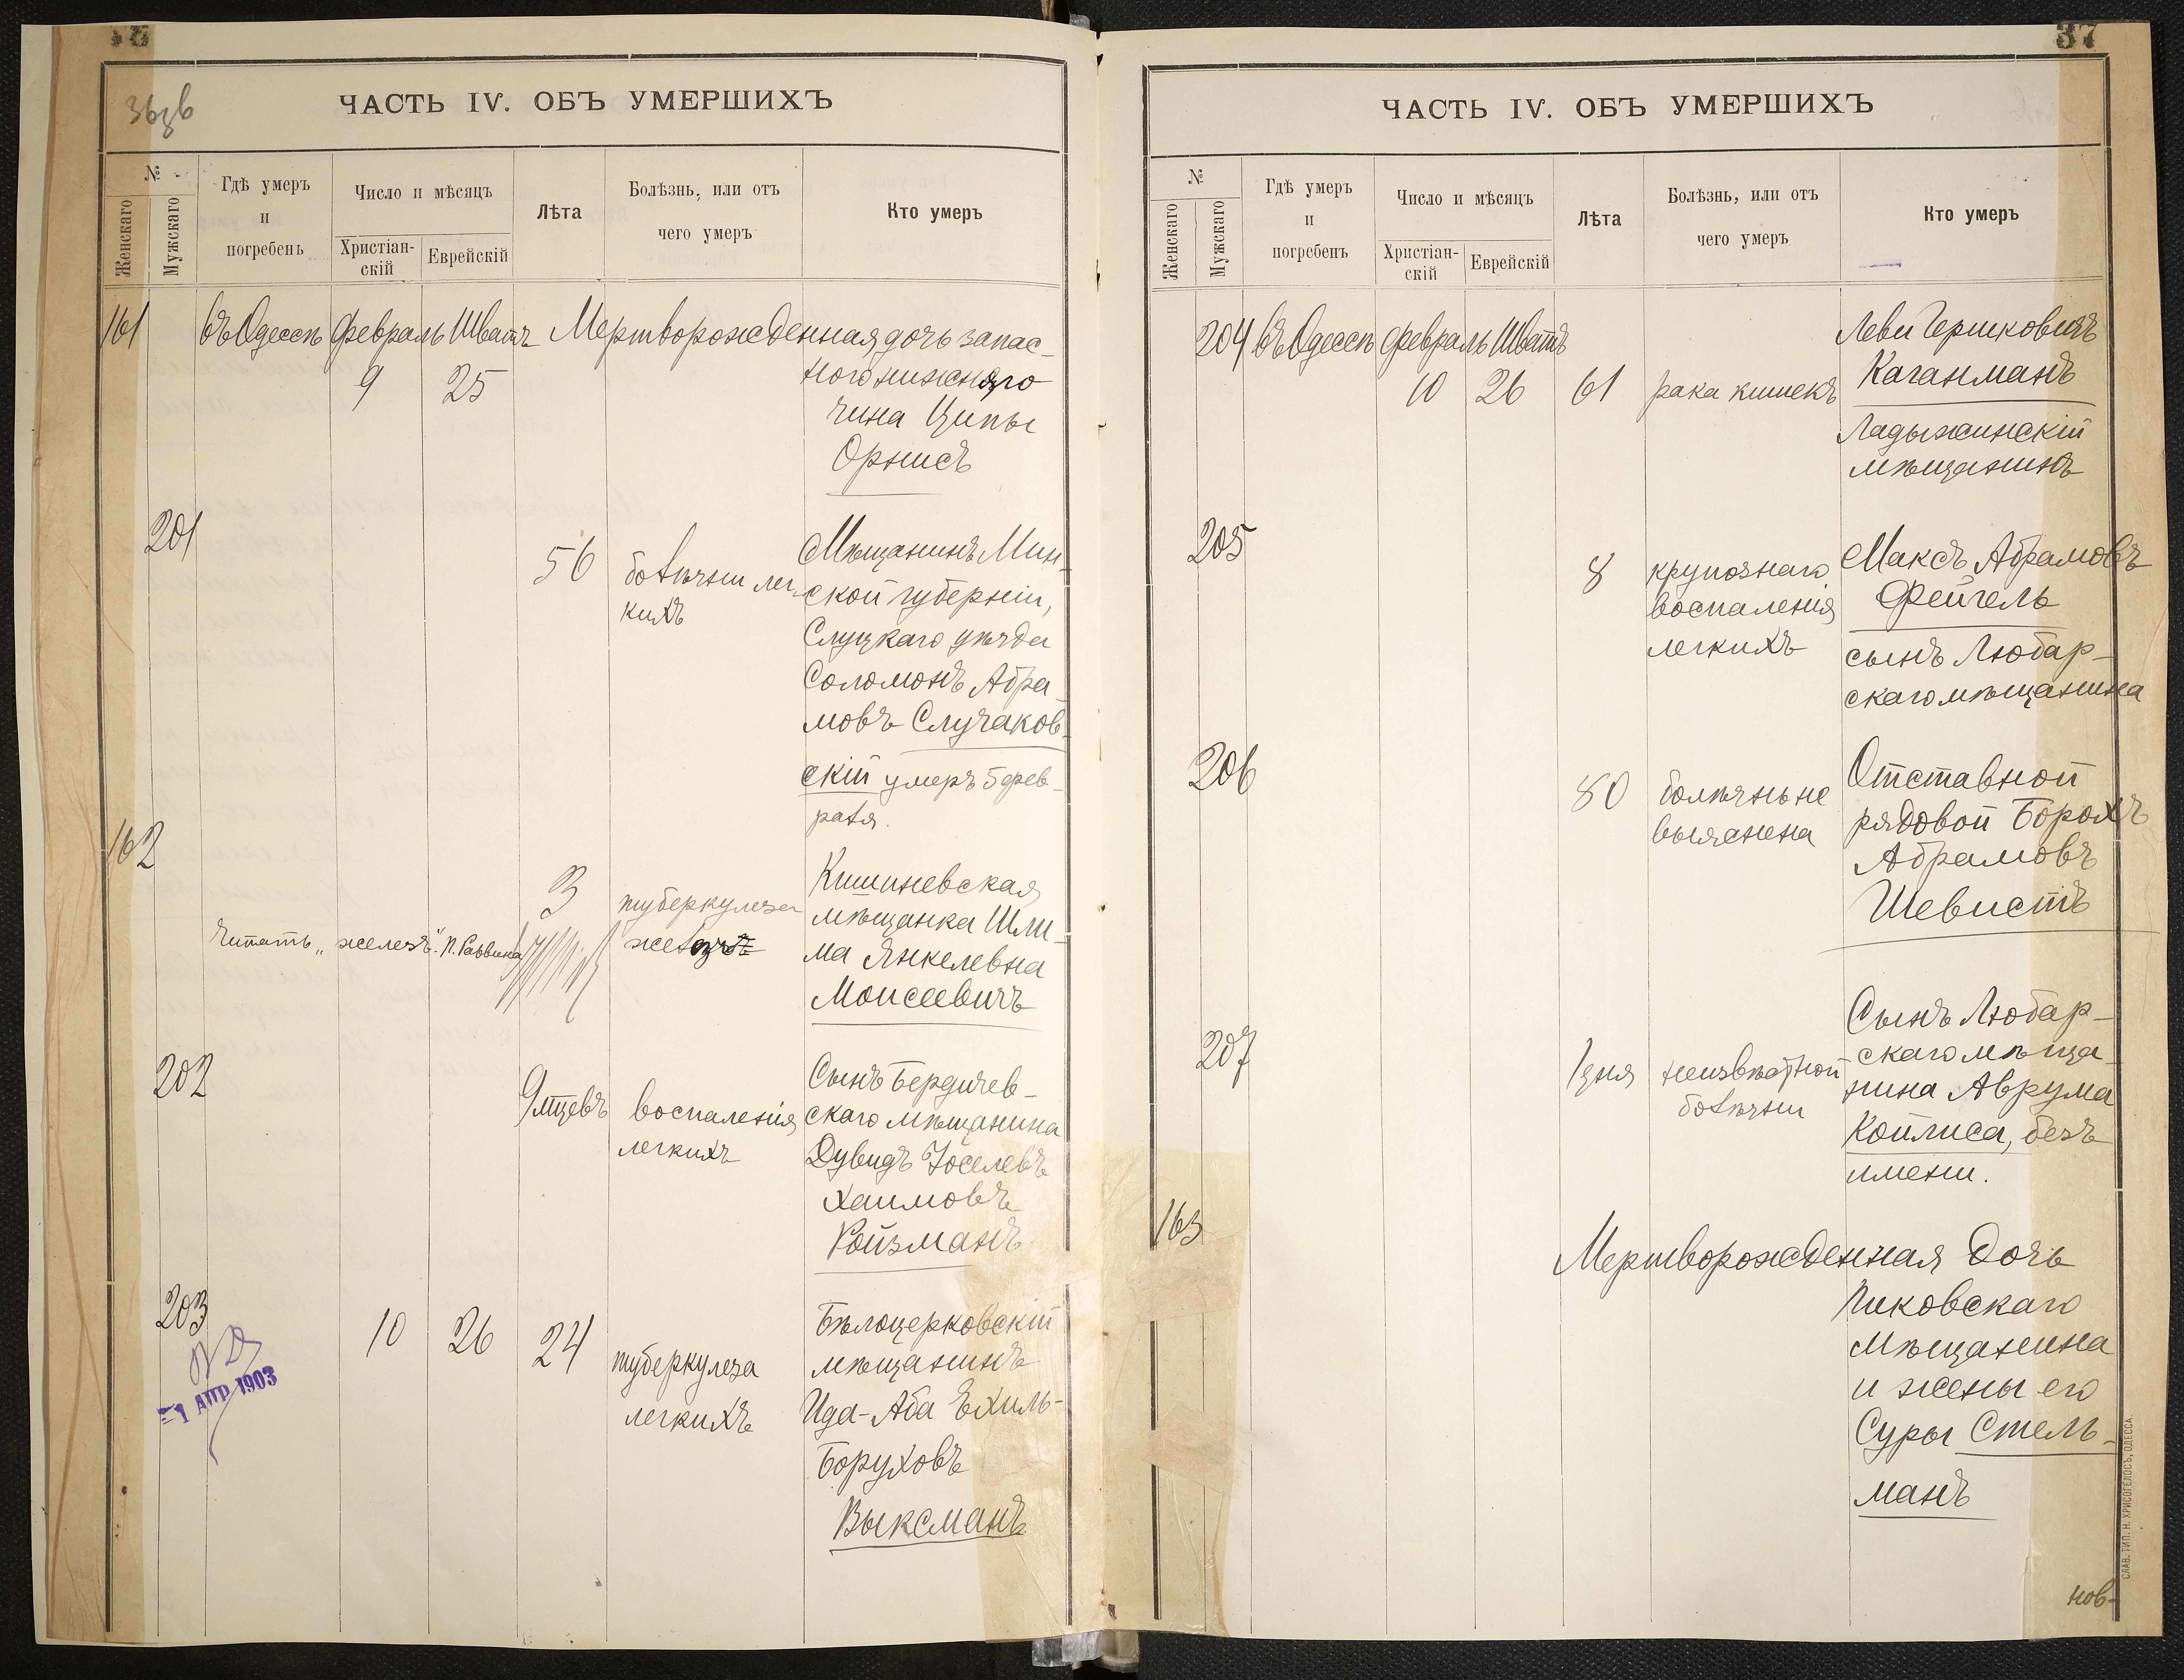 36зв
ЧАСТЬ IV. ОБЪ УМЕРШИХЪ
№
Женскаго
Мужскаго
Гдѣ умеръ
и
погребенъ
Число и мѣсяцъ
Христіан-
скій
Еврейскій
Лѣта
Болѣзнь, или отъ
чего умеръ
Кто умеръ
161 въ Одессѣ февраль Шватъ Мертворожденная дочь запас-
9 25 ного нижняго
чина Ципы
Орнисъ
201
56 болѣзни лег-
кихъ
Мѣщанинъ Мин-
ской губерніи,
Слуцкаго уѣзда
Соломонъ Абра-
мовъ Случаков-
скій умеръ 5 фев-
раля.
162
3 туберкулеза
Читать „железъ“. П. Раввина
Кишиневская
мѣщанка Шли-
ма Янкелевна
Моисеевичъ
202
9 мцевъ воспаленія
легкихъ
Сынъ Бердичев-
скаго мѣщанина
Дувидъ Іоселевъ
Хаимовъ
Ройзманъ
203
10 26 24 туберкулеза
легкихъ
Бѣлоцерковскій
мѣщанинъ
Ида-Аба Ехиль-
Боруховъ
Выксманъ
1 АПР 1903
37
ЧАСТЬ IV. ОБЪ УМЕРШИХЪ
№
Женскаго
Мужскаго
Гдѣ умеръ
и
погребенъ
Число и мѣсяцъ
Христіан-
скій
Еврейскій
Лѣта
Болѣзнь, или отъ
чего умеръ
Кто умеръ
204 въ Одессѣ февраль Шватъ
10 26 61 рака кишекъ
Леви Гершковичъ
Каганманъ
Ладыжинскій
мѣщанинъ
205
8 крупознаго
воспаленія
легкихъ
Максъ Абрамовъ
Фейгель
сынъ Любар-
скаго мѣщанина
206
80 болѣзнь не
выяснена
Отставной
рядовой Борохъ
Абрамовъ
Шевистъ
207
1 дня неизвѣстной
болѣзни
Сынъ Любар-
скаго мѣща-
нина Аврума
Койлиса, безъ
имени.
163
Мертворожденная дочь
Пиковскаго
мѣщанина
и жены его
Суры Стель-
манъ
нов-
СЛАВ. ТИП. Н. ХРИСОГЕЛОСЪ, ОДЕССА.